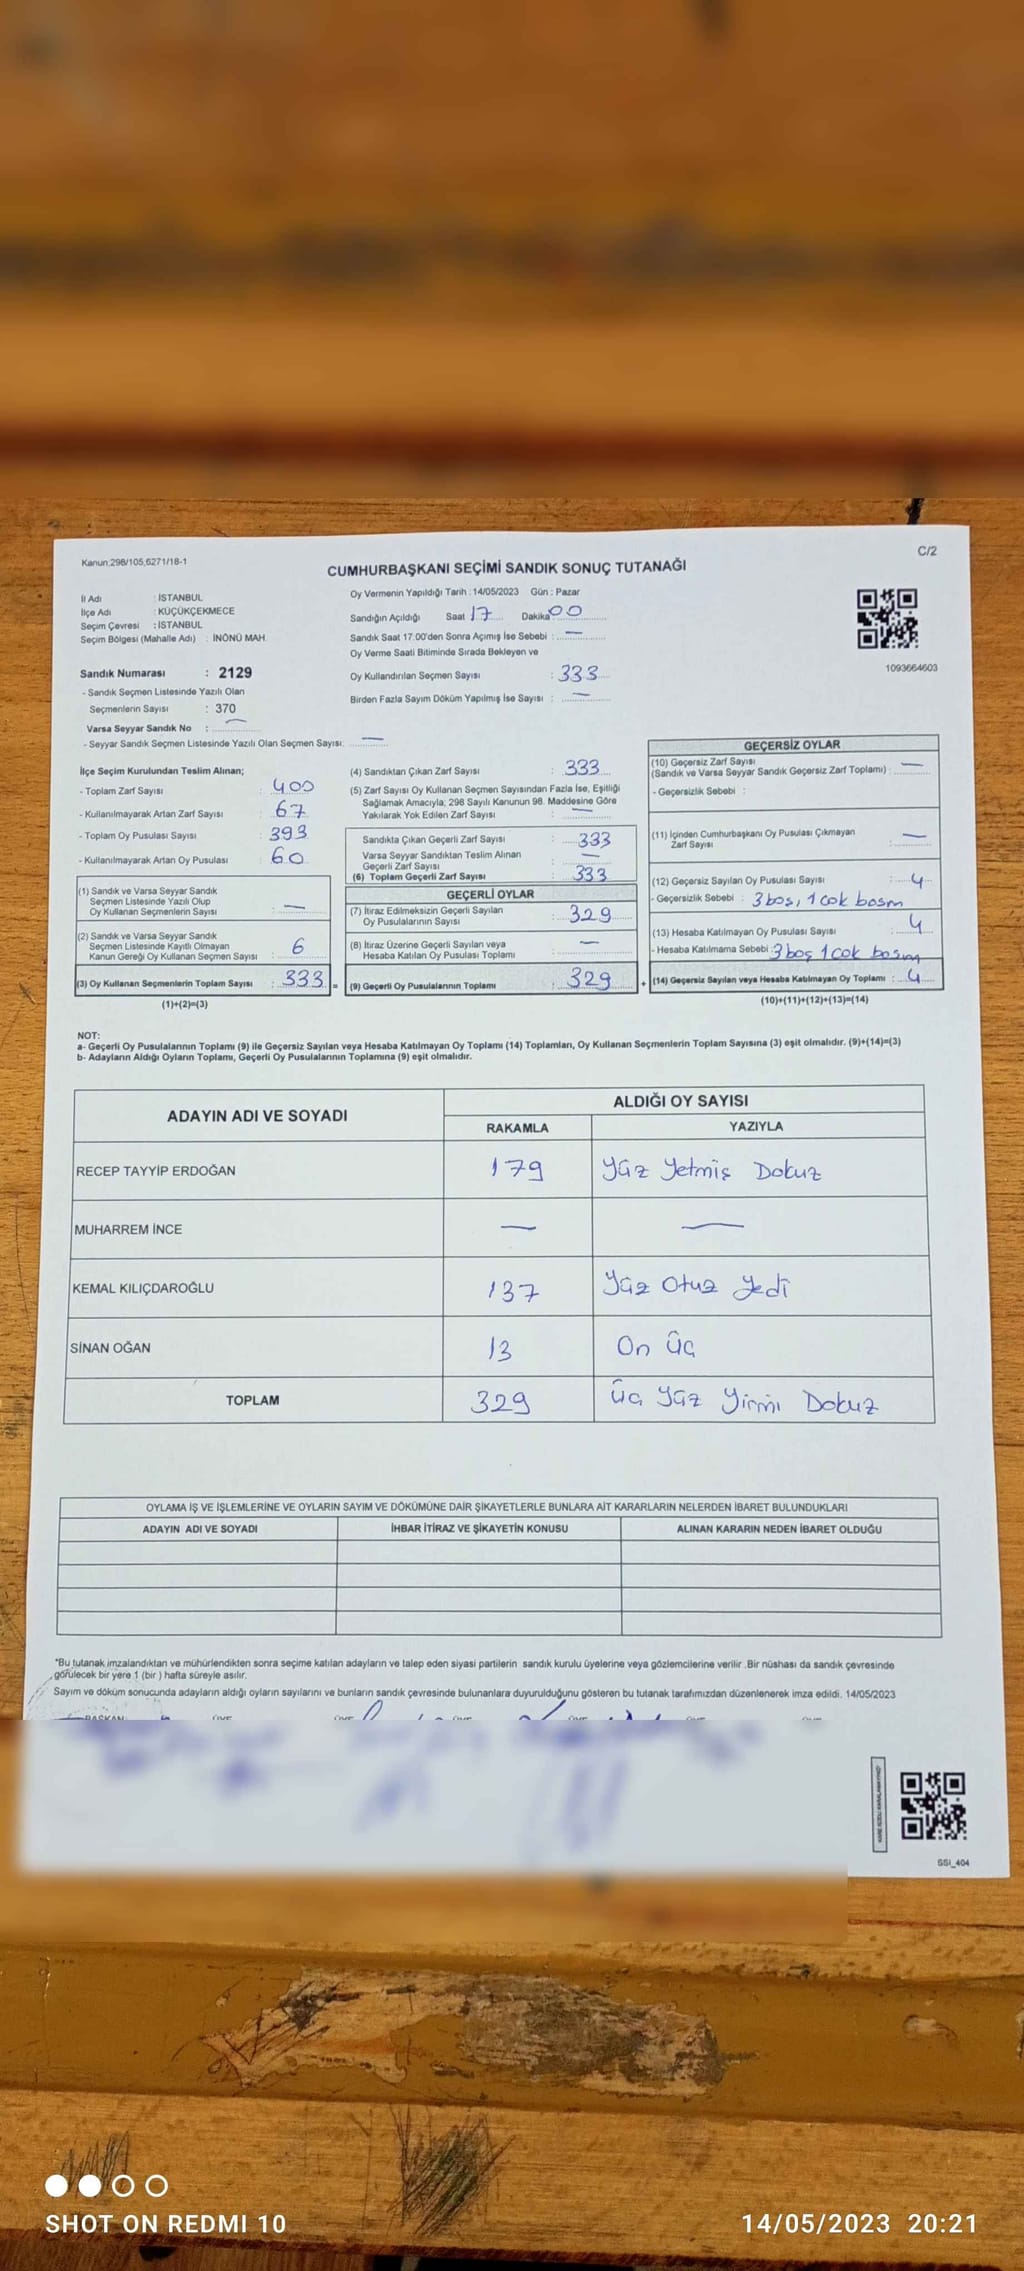 Kanun:298/105,6271/18-1
C/2
CUMHURBAŞKANI SEÇİMİ SANDIK SONUÇ TUTANAĞI
İl Adı : İSTANBUL
İlçe Adı : KÜÇÜKÇEKMECE
Seçim Çevresi : İSTANBUL
Seçim Bölgesi (Mahalle Adı) : İNÖNÜ MAH.
Oy Vermenin Yapıldığı Tarih : 14/05/2023 Gün : Pazar
Sandığın Açıldığı Saat 17 Dakika 00
Sandık Saat 17.00'den Sonra Açımış İse Sebebi : —
Oy Verme Saati Bitiminde Sırada Bekleyen ve
Oy Kullandırılan Seçmen Sayısı : 333
Birden Fazla Sayım Döküm Yapılmış İse Sayısı : —
1093664603
Sandık Numarası : 2129
- Sandık Seçmen Listesinde Yazılı Olan
Seçmenlerin Sayısı : 370
Varsa Seyyar Sandık No : —
- Seyyar Sandık Seçmen Listesinde Yazılı Olan Seçmen Sayısı: —
İlçe Seçim Kurulundan Teslim Alınan;
- Toplam Zarf Sayısı : 400
- Kullanılmayarak Artan Zarf Sayısı : 67
- Toplam Oy Pusulası Sayısı : 393
- Kullanılmayarak Artan Oy Pusulası : 60
(1) Sandık ve Varsa Seyyar Sandık
Seçmen Listesinde Yazılı Olup
Oy Kullanan Seçmenlerin Sayısı : —
(2) Sandık ve Varsa Seyyar Sandık
Seçmen Listesinde Kayıtlı Olmayan
Kanun Gereği Oy Kullanan Seçmen Sayısı : 6
(3) Oy Kullanan Seçmenlerin Toplam Sayısı : 333 =
(1)+(2)=(3)
(4) Sandıktan Çıkan Zarf Sayısı : 333
(5) Zarf Sayısı Oy Kullanan Seçmen Sayısından Fazla İse, Eşitliği
Sağlamak Amacıyla; 298 Sayılı Kanunun 98. Maddesine Göre
Yakılarak Yok Edilen Zarf Sayısı : —
Sandıkta Çıkan Geçerli Zarf Sayısı : 333
Varsa Seyyar Sandıktan Teslim Alınan
Geçerli Zarf Sayısı : —
(6) Toplam Geçerli Zarf Sayısı : 333
GEÇERLİ OYLAR
(7) İtiraz Edilmeksizin Geçerli Sayılan
Oy Pusulalarının Sayısı : 329
(8) İtiraz Üzerine Geçerli Sayılan veya
Hesaba Katılan Oy Pusulası Toplamı : —
(9) Geçerli Oy Pusulalarının Toplamı : 329 +
GEÇERSİZ OYLAR
(10) Geçersiz Zarf Sayısı
(Sandık ve Varsa Seyyar Sandık Geçersiz Zarf Toplamı) : —
- Geçersizlik Sebebi :
(11) İçinden Cumhurbaşkanı Oy Pusulası Çıkmayan
Zarf Sayısı : —
(12) Geçersiz Sayılan Oy Pusulası Sayısı : 4
- Geçersizlik Sebebi : 3 boş, 1 çok basım
(13) Hesaba Katılmayan Oy Pusulası Sayısı : 4
- Hesaba Katılmama Sebebi : 3 boş 1 cok basım
(14) Geçersiz Sayılan veya Hesaba Katılmayan Oy Toplamı : 4
(10)+(11)+(12)+(13)=(14)
NOT:
a- Geçerli Oy Pusulalarının Toplamı (9) ile Geçersiz Sayılan veya Hesaba Katılmayan Oy Toplamı (14) Toplamları, Oy Kullanan Seçmenlerin Toplam Sayısına (3) eşit olmalıdır. (9)+(14)=(3)
b- Adayların Aldığı Oyların Toplamı, Geçerli Oy Pusulalarının Toplamına (9) eşit olmalıdır.
ADAYIN ADI VE SOYADI
ALDIĞI OY SAYISI
RAKAMLA YAZIYLA
RECEP TAYYİP ERDOĞAN 179 Yüz Yetmiş Dokuz
MUHARREM İNCE — —
KEMAL KILIÇDAROĞLU 137 Yüz Otuz Yedi
SİNAN OĞAN 13 On üç
TOPLAM 329 üç Yüz Yirmi Dokuz
OYLAMA İŞ VE İŞLEMLERİNE VE OYLARIN SAYIM VE DÖKÜMÜNE DAİR ŞİKAYETLERLE BUNLARA AİT KARARLARIN NELERDEN İBARET BULUNDUKLARI
ADAYIN ADI VE SOYADI İHBAR İTİRAZ VE ŞİKAYETİN KONUSU ALINAN KARARIN NEDEN İBARET OLDUĞU
*Bu tutanak imzalandıktan ve mühürlendikten sonra seçime katılan adayların ve talep eden siyasi partilerin sandık kurulu üyelerine veya gözlemcilerine verilir .Bir nüshası da sandık çevresinde
görülecek bir yere 1 (bir ) hafta süreyle asılır.
Sayım ve döküm sonucunda adayların aldığı oyların sayılarını ve bunların sandık çevresinde bulunanlara duyurulduğunu gösteren bu tutanak tarafımızdan düzenlenerek imza edildi. 14/05/2023
SSI_404
SHOT ON REDMI 10
14/05/2023 20:21